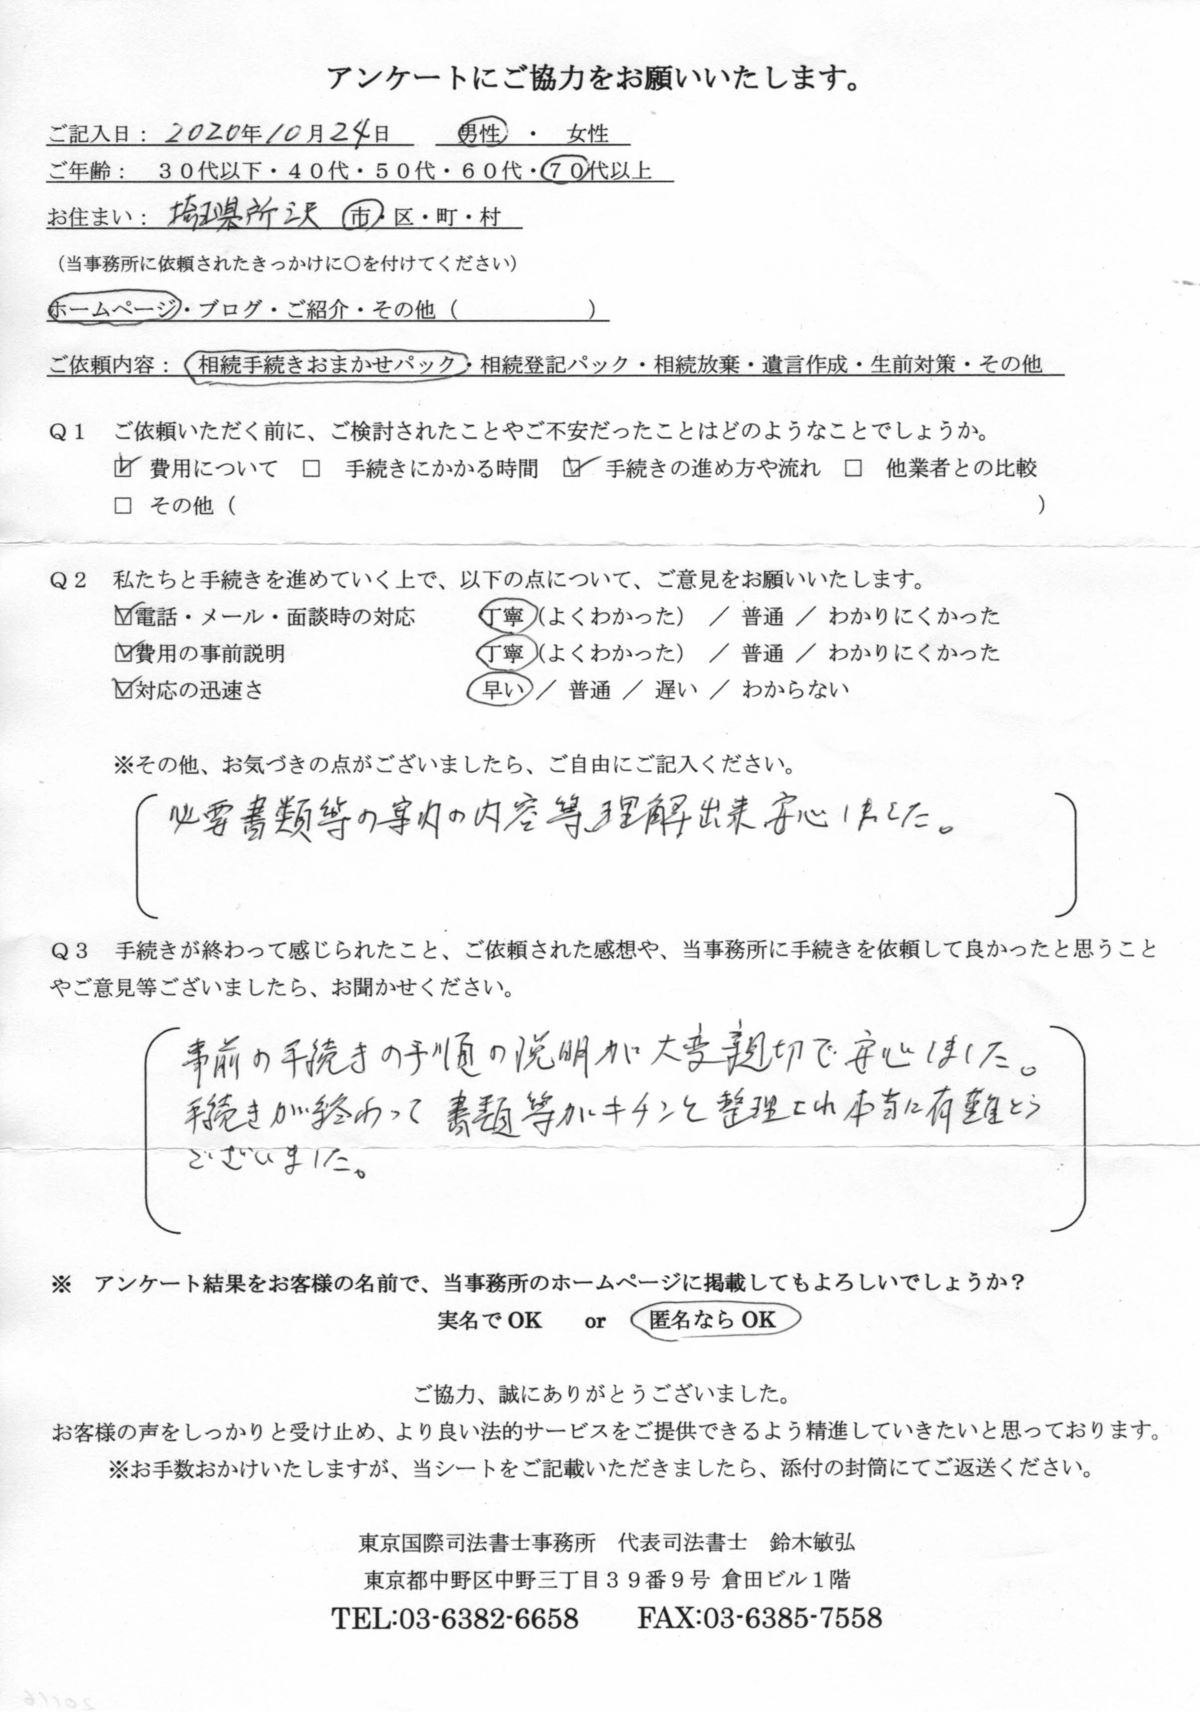 アンケートにご協力をお願いいたします。
ご記入日： 2020年10月24日　男性 ・ 女性
ご年齢：　３０代以下・４０代・５０代・６０代・７０代以上
お住まい： 埼玉県所沢 市・区・町・村
（当事務所に依頼されたきっかけに〇を付けてください）
ホームページ・ブログ・ご紹介・その他（　　　　　　）
ご依頼内容： 相続手続きおまかせパック・相続登記パック・相続放棄・遺言作成・生前対策・その他
Ｑ１　ご依頼いただく前に、ご検討されたことやご不安だったことはどのようなことでしょうか。
☑ 費用について　□　手続きにかかる時間　☑ 手続きの進め方や流れ　□　他業者との比較
□ その他（　　　　　　　　　　　　　　　　　　　　　　　　）
Ｑ２　私たちと手続きを進めていく上で、以下の点について、ご意見をお願いいたします。
☑電話・メール・面談時の対応　　　丁寧（よくわかった） ／ 普通 ／ わかりにくかった
☑費用の事前説明　　　丁寧（よくわかった） ／ 普通 ／ わかりにくかった
☑対応の迅速さ　　　早い ／ 普通 ／ 遅い ／ わからない
※その他、お気づきの点がございましたら、ご自由にご記入ください。
必要書類等の案内の内容等理解出来安心しました。
Ｑ３　手続きが終わって感じられたこと、ご依頼された感想や、当事務所に手続きを依頼して良かったと思うこと
やご意見等ございましたら、お聞かせください。
事前の手続きの手順の説明が大変親切で安心しました。
手続きが終わって書類等がキチンと整理され本当に有難とう
ございました。
※　アンケート結果をお客様の名前で、当事務所のホームページに掲載してもよろしいでしょうか？
実名で OK　　or　　匿名なら OK
ご協力、誠にありがとうございました。
お客様の声をしっかりと受け止め、より良い法的サービスをご提供できるよう精進していきたいと思っております。
※お手数おかけいたしますが、当シートをご記載いただきましたら、添付の封筒にてご返送ください。
東京国際司法書士事務所　代表司法書士　鈴木敏弘
東京都中野区中野三丁目３９番９号 倉田ビル１階
TEL:03-6382-6658　　FAX:03-6385-7558